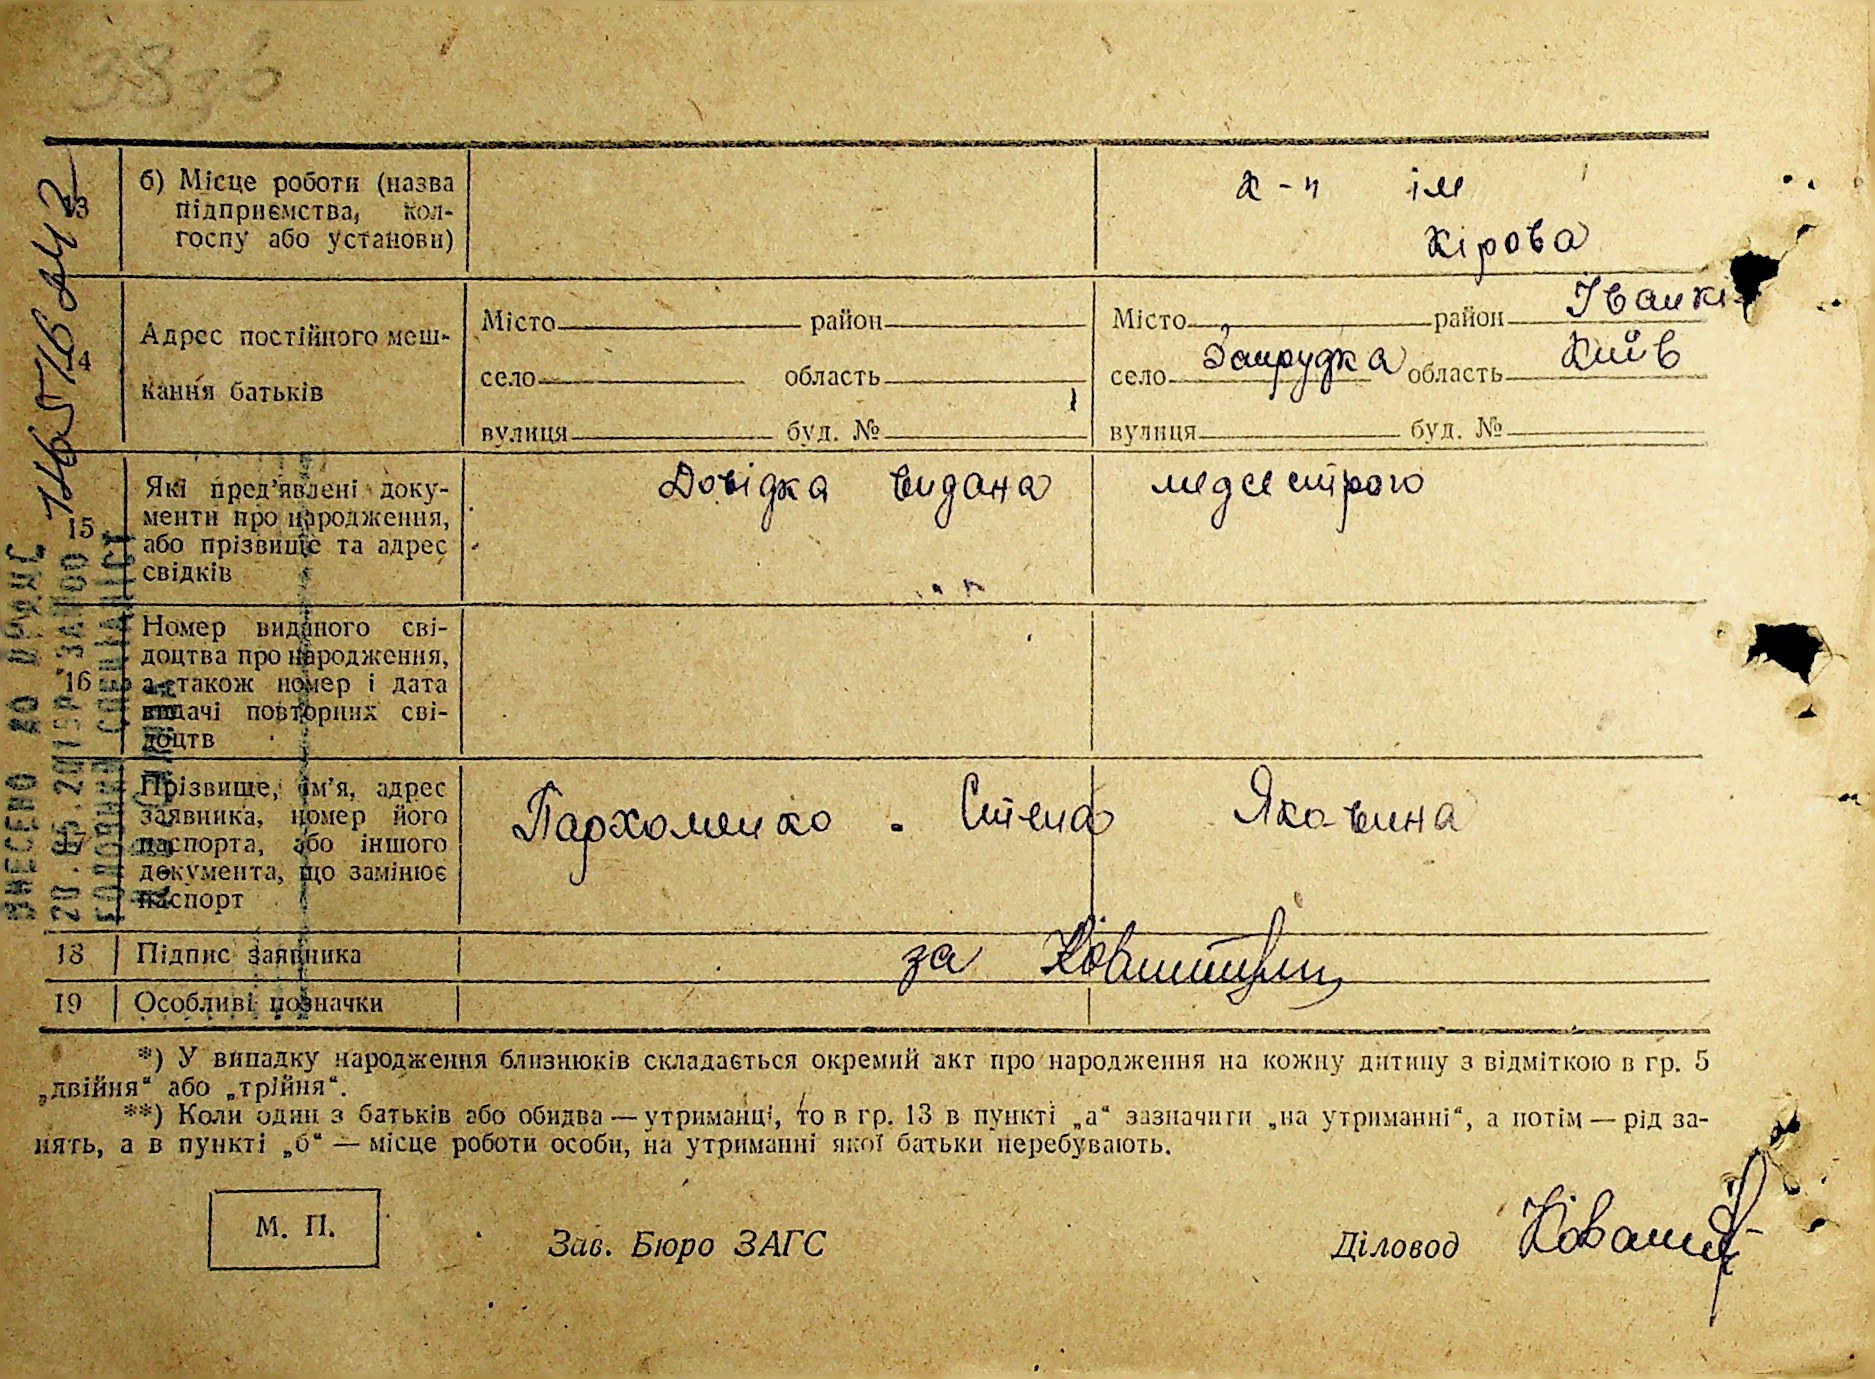 13 б) Місце роботи (назва
підприємства, кол-
госпу або установи)
ім
Кірова
14 Адрес постійного меш-
кання батьків
Місто район Місто район Іванкі
село область село Запрудка область Київ
вулиця буд. № вулиця буд. №
15 Які пред'явлені доку-
менти про народження,
або прізвище та адрес
свідків
Довідка видана медсестрою
16 Номер виданого сві-
доцтва про народження,
а також номер і дата
видачі повторних сві-
доцтв
17 Прізвище, ім'я, адрес
заявника, номер його
паспорта, або іншого
документа, що замінює
паспорт
Пархоменко Степа Яковина
18 Підпис заявника за
19 Особливі позначки
*) У випадку народження близнюків складається окремий акт про народження на кожну дитину з відміткою в гр. 5
„двійня“ або „трійня“.
**) Коли один з батьків або обидва — утриманці, то в гр. 13 в пункті „а“ зазначити „на утриманні“, а потім — рід за-
нять, а в пункті „б“ — місце роботи особи, на утриманні якої батьки перебувають.
М. П.
Зав. Бюро ЗАГС
Діловод